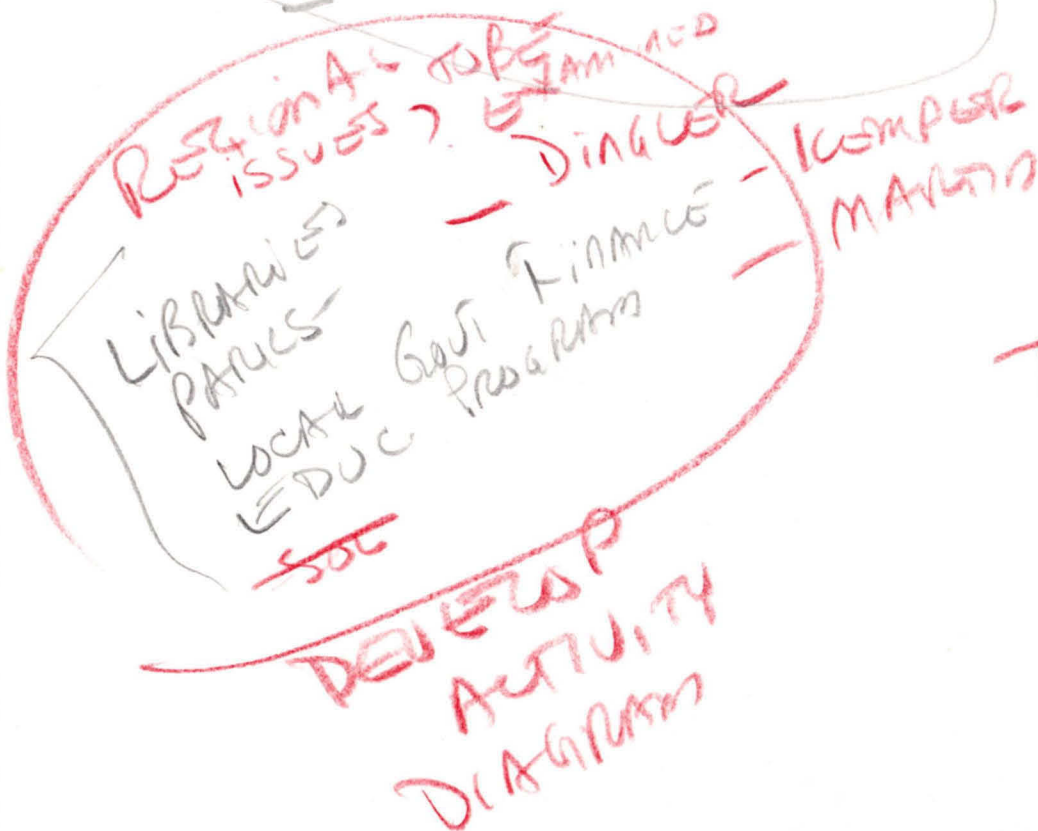 REGIONAL TO BE EXAMINED
ISSUES?
- DINGLER
- KEMPER
- MARTIN
LIBRARIES
PARKS
LOCAL GOV'T FINANCE
EDUC. PROGRAM
SOC
DEVELOP
ACTIVITY
DIAGRAM